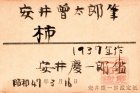 安井曾太郎筆
柿
1937年作
安井慶一郎鑑
昭和47.3.16